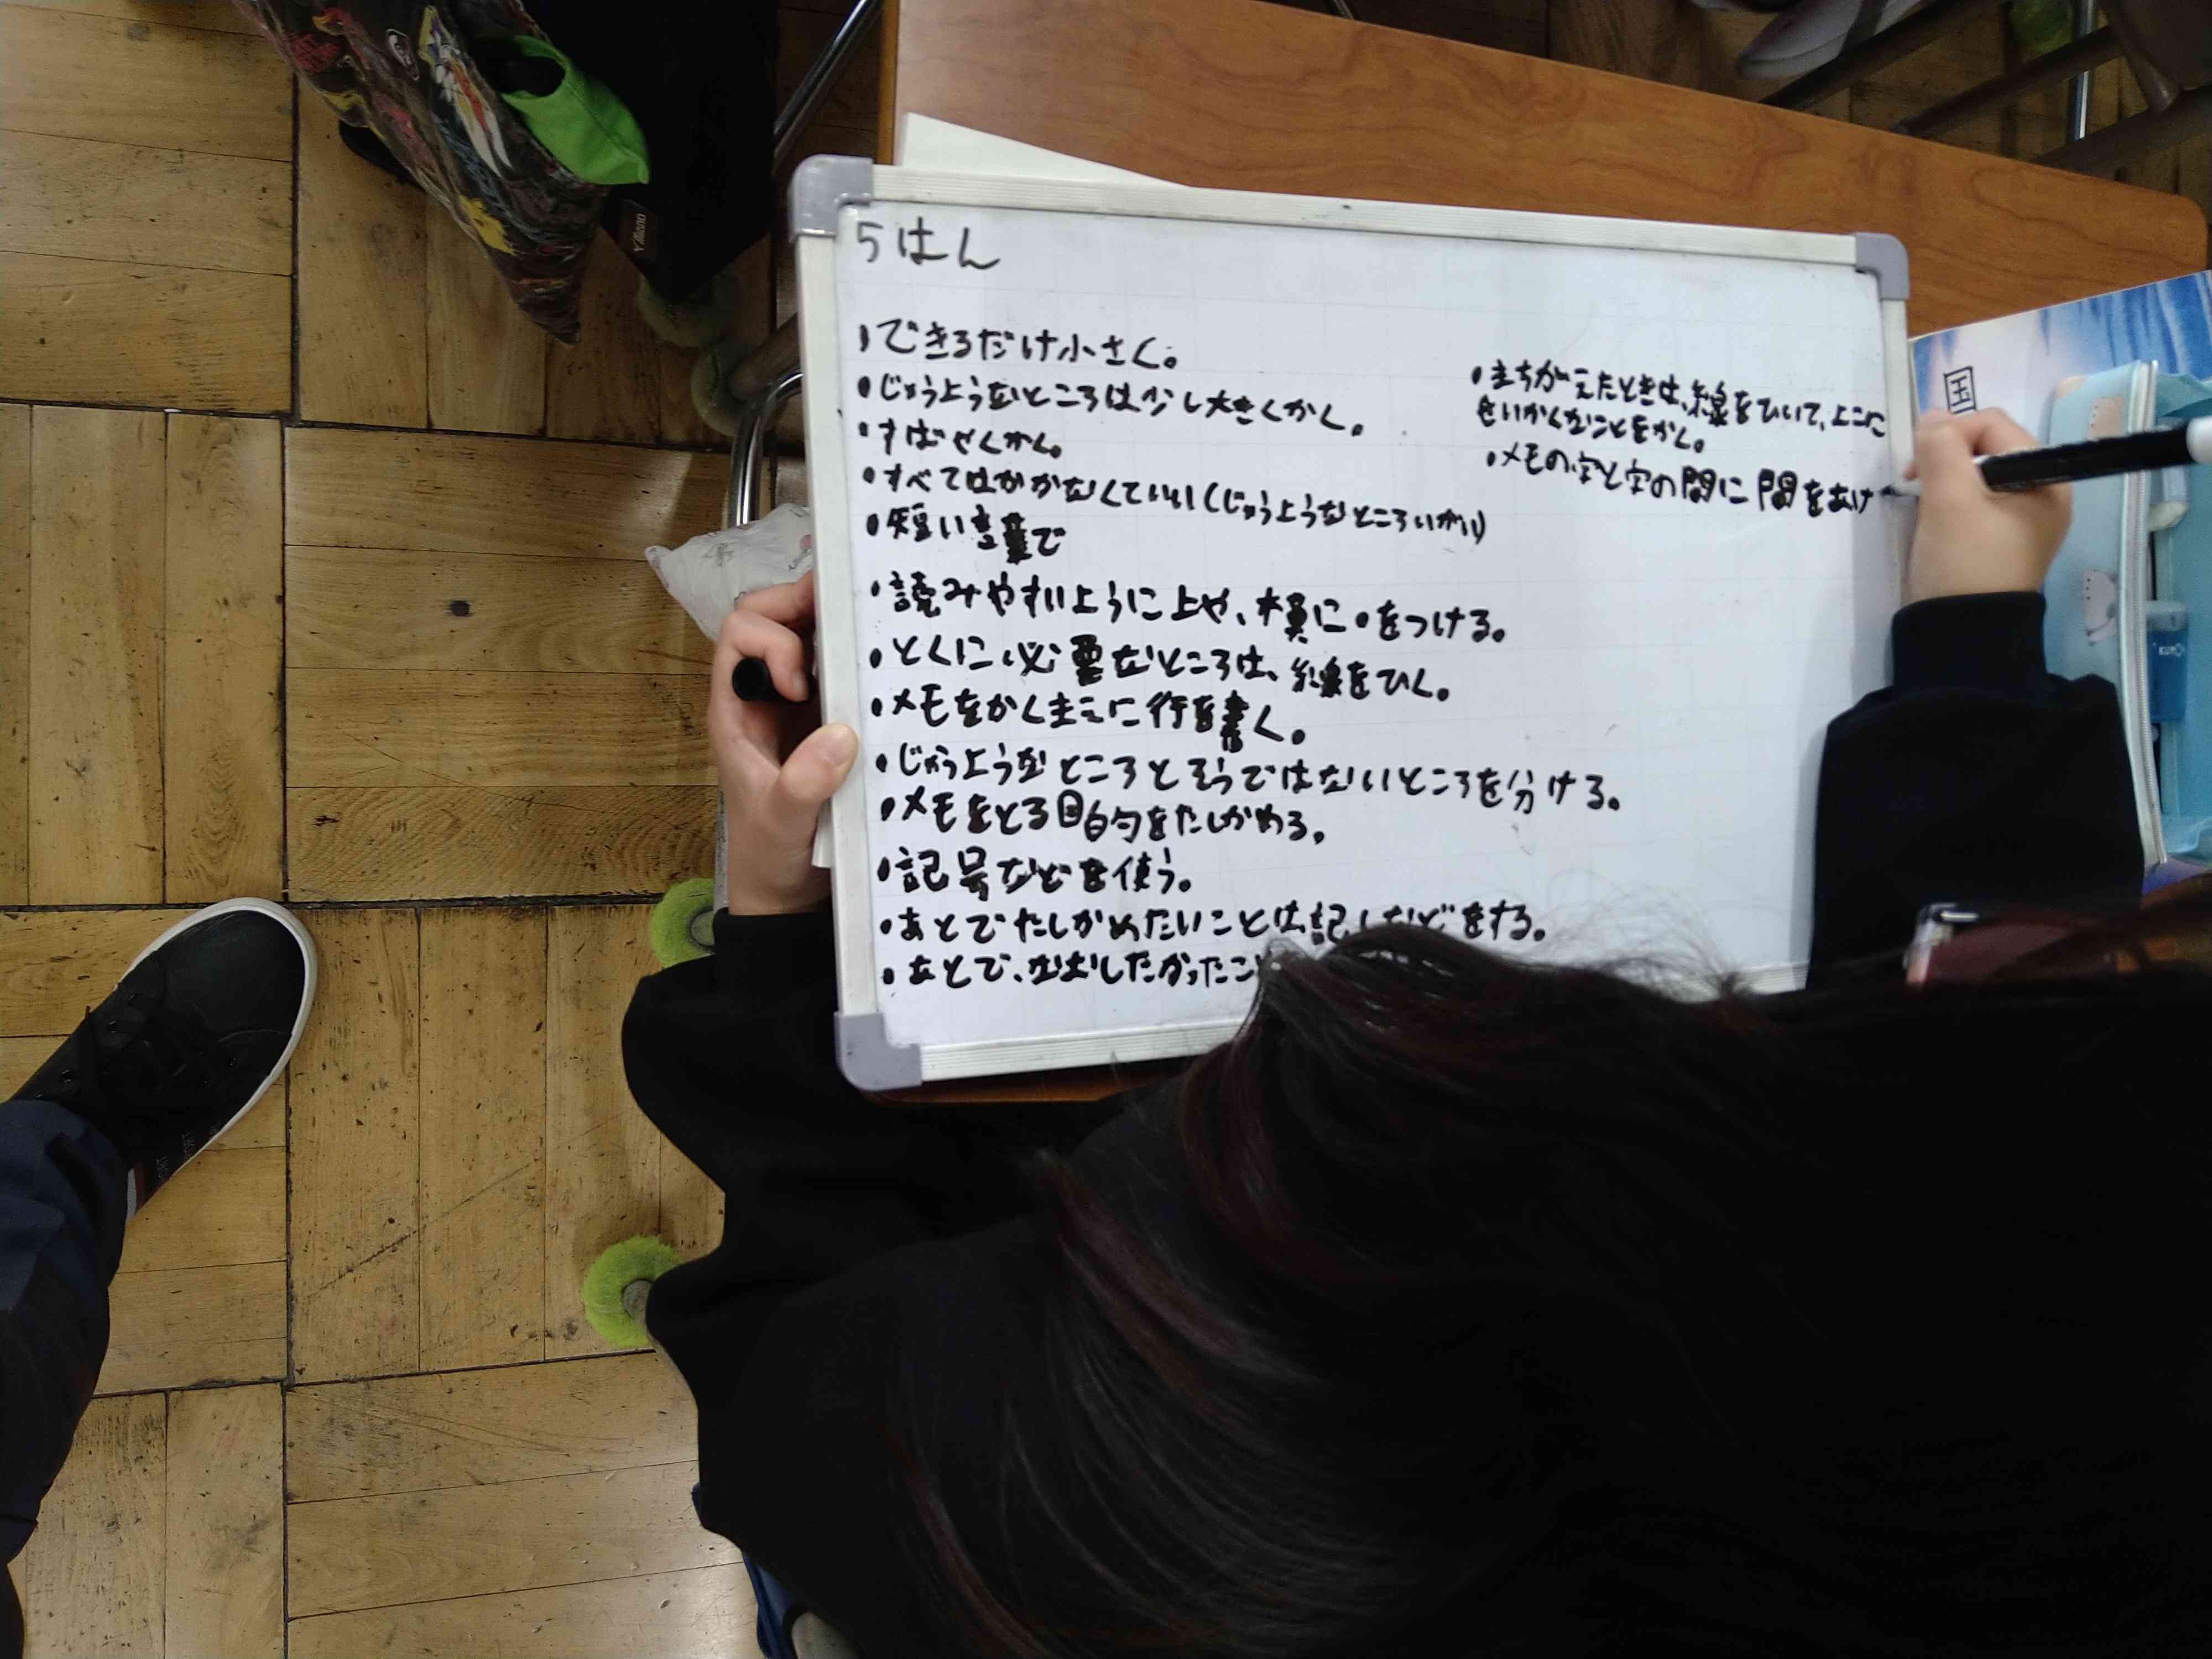 5はん
・できるだけ小さく。
・じゅうようなところは少し大きくかく。
・すばやくかく。
・すべてはかかなくていい(じゅうようなところいがい)
・短い言葉で
・読みやすいように上や、横に・をつける。
・とくに必要なところは、線をひく。
・メモをかくまえに行を書く。
・じゅうようなところとそうではないところを分ける。
・メモをとる目的をたしかめる。
・記号などを使う。
・あとでたしかめたいことは記しなどをする。
・あとで、
・まちがえたときは、線をひいて、上に
せいかくなことをかく。
・メモの字と字の間に間をあけ
国
KUM